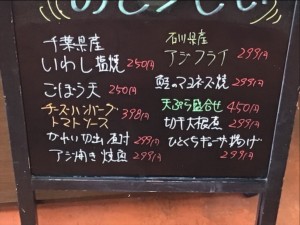 千葉県産
いわし塩焼 250円
ごぼう天 250円
チーズハンバーグ 398円
トマトソース
かれい切出し煮付 299円
アジ開き焼魚 299円
石川県産
アジフライ 299円
鮭のマヨネーズ焼 299円
天ぷら盛合せ 450円
切干大根煮 299円
ひとくちギョーザ揚げ
299円